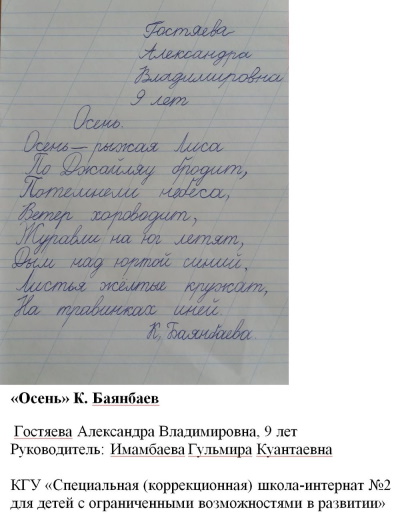 Гостяева
Александра
Владимировна
9 лет
Осень.
Осень – рыжая лиса
По Джайляу бродит,
Потемнели небеса,
Ветер хороводит,
Журавли на юг летят,
Дым над юртой синий,
Листья жёлтые кружат,
На травинках иней.
К. Баянбаева
«Осень» К. Баянбаев
Гостяева Александра Владимировна, 9 лет
Руководитель: Имамбаева Гульмира Куантаевна
КГУ «Специальная (коррекционная) школа-интернат №2
для детей с ограниченными возможностями в развитии»